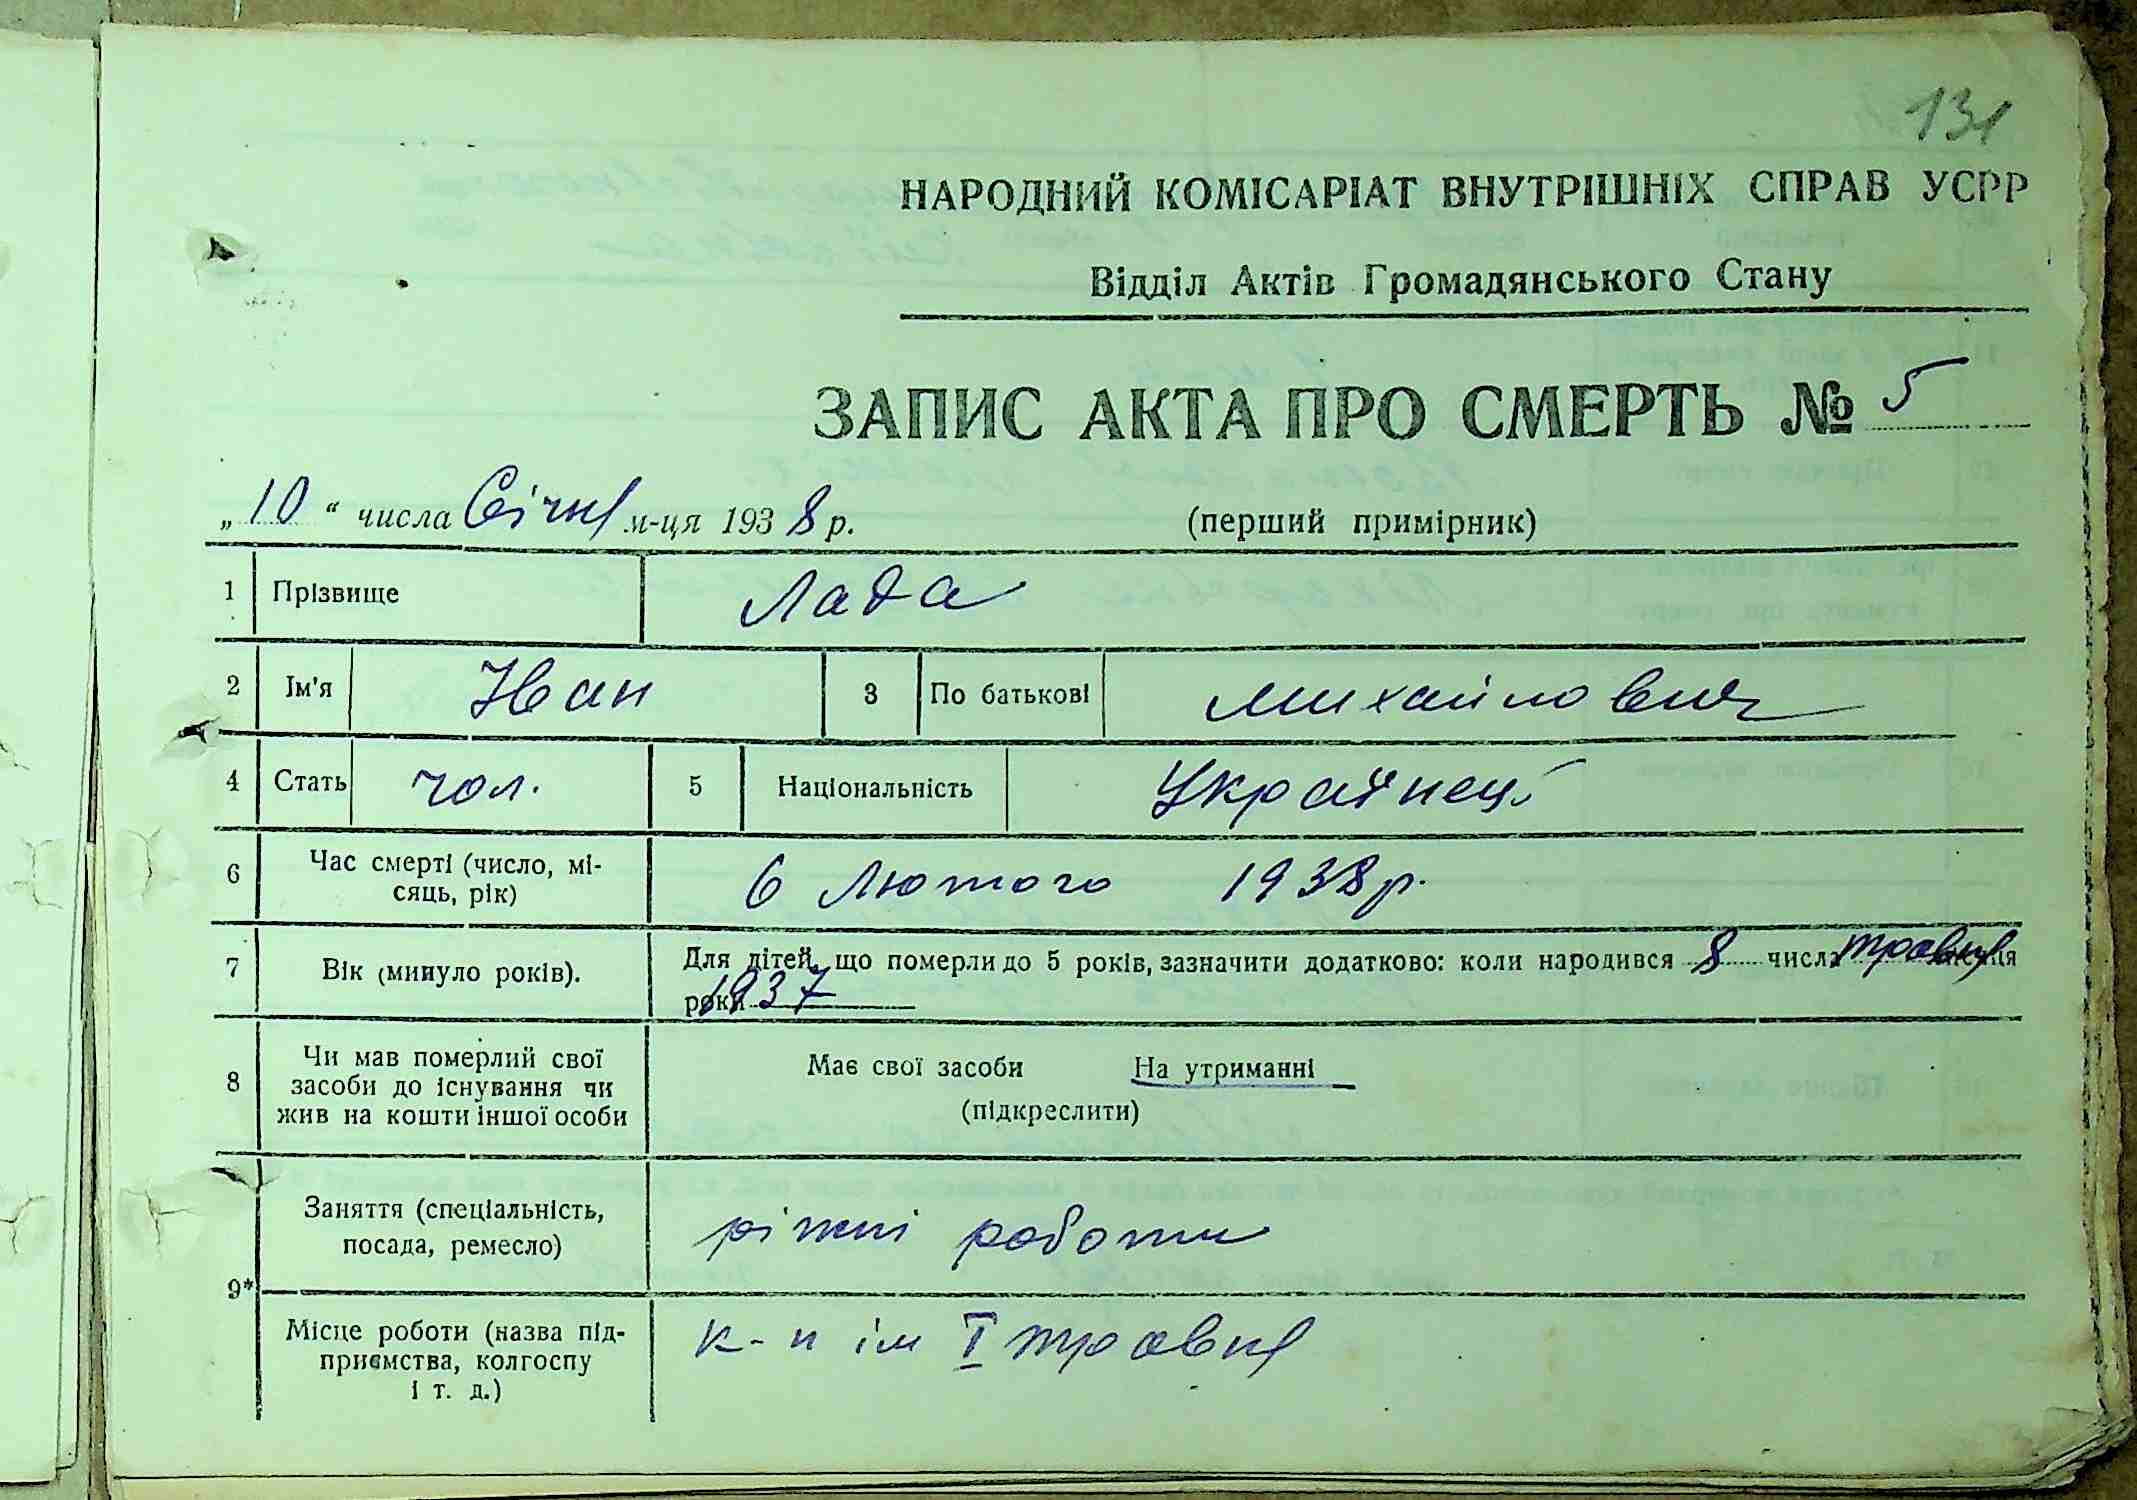 131
НАРОДНИЙ КОМІСАРІАТ ВНУТРІШНІХ СПРАВ УСРР
Відділ Актів Громадянського Стану
ЗАПИС АКТА ПРО СМЕРТЬ № 5
„10“ числа Січня м-ця 1938 р. (перший примірник)
1 Прізвище Лада
2 Ім'я Іван 3 По батькові Михайлович
4 Стать чол. 5 Національність Українець
6 Час смерті (число, мі-
сяць, рік) 6 Лютого 1938 р.
7 Вік (минуло років). Для дітей, що померли до 5 років, зазначити додатково: коли народився 8 числа травня місяця
роки 1937
8 Чи мав померлий свої
засоби до існування чи
жив на кошти іншої особи
Має свої засоби На утриманні
(підкреслити)
9*
Заняття (спеціальність,
посада, ремесло) ріжні роботи
Місце роботи (назва під-
приємства, колгоспу
і т. д.)
к-п ім I травня